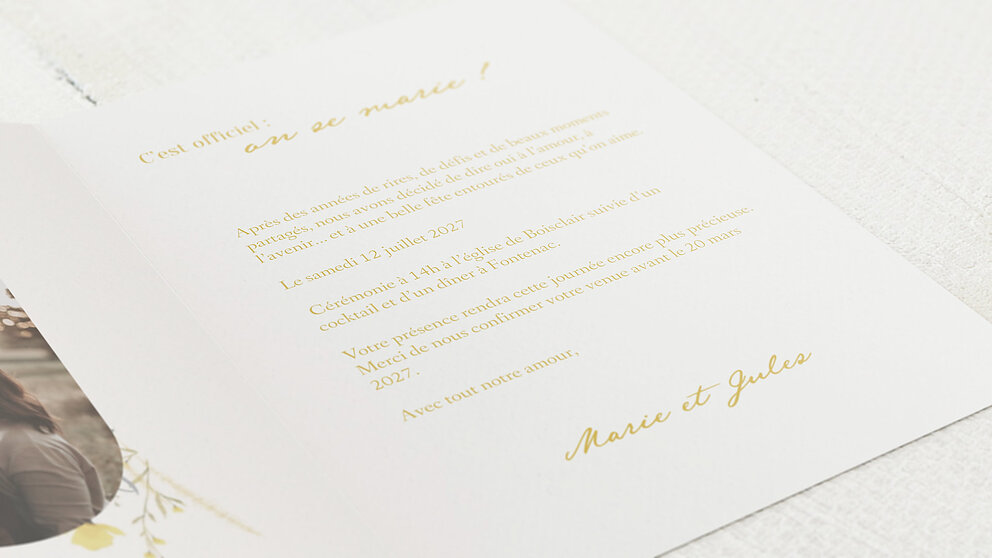 C'est officiel :
on se marie !
Après des années de rires, de défis et de beaux moments
partagés, nous avons décidé de dire oui à l'amour, à
l'avenir... et à une belle fête entourés de ceux qu'on aime.
Le samedi 12 juillet 2027
Cérémonie à 14h à l'église de Boisclair suivie d'un
cocktail et d'un dîner à Fontenac.
Votre présence rendra cette journée encore plus précieuse.
Merci de nous confirmer votre venue avant le 20 mars
2027.
Avec tout notre amour,
Marie et Jules